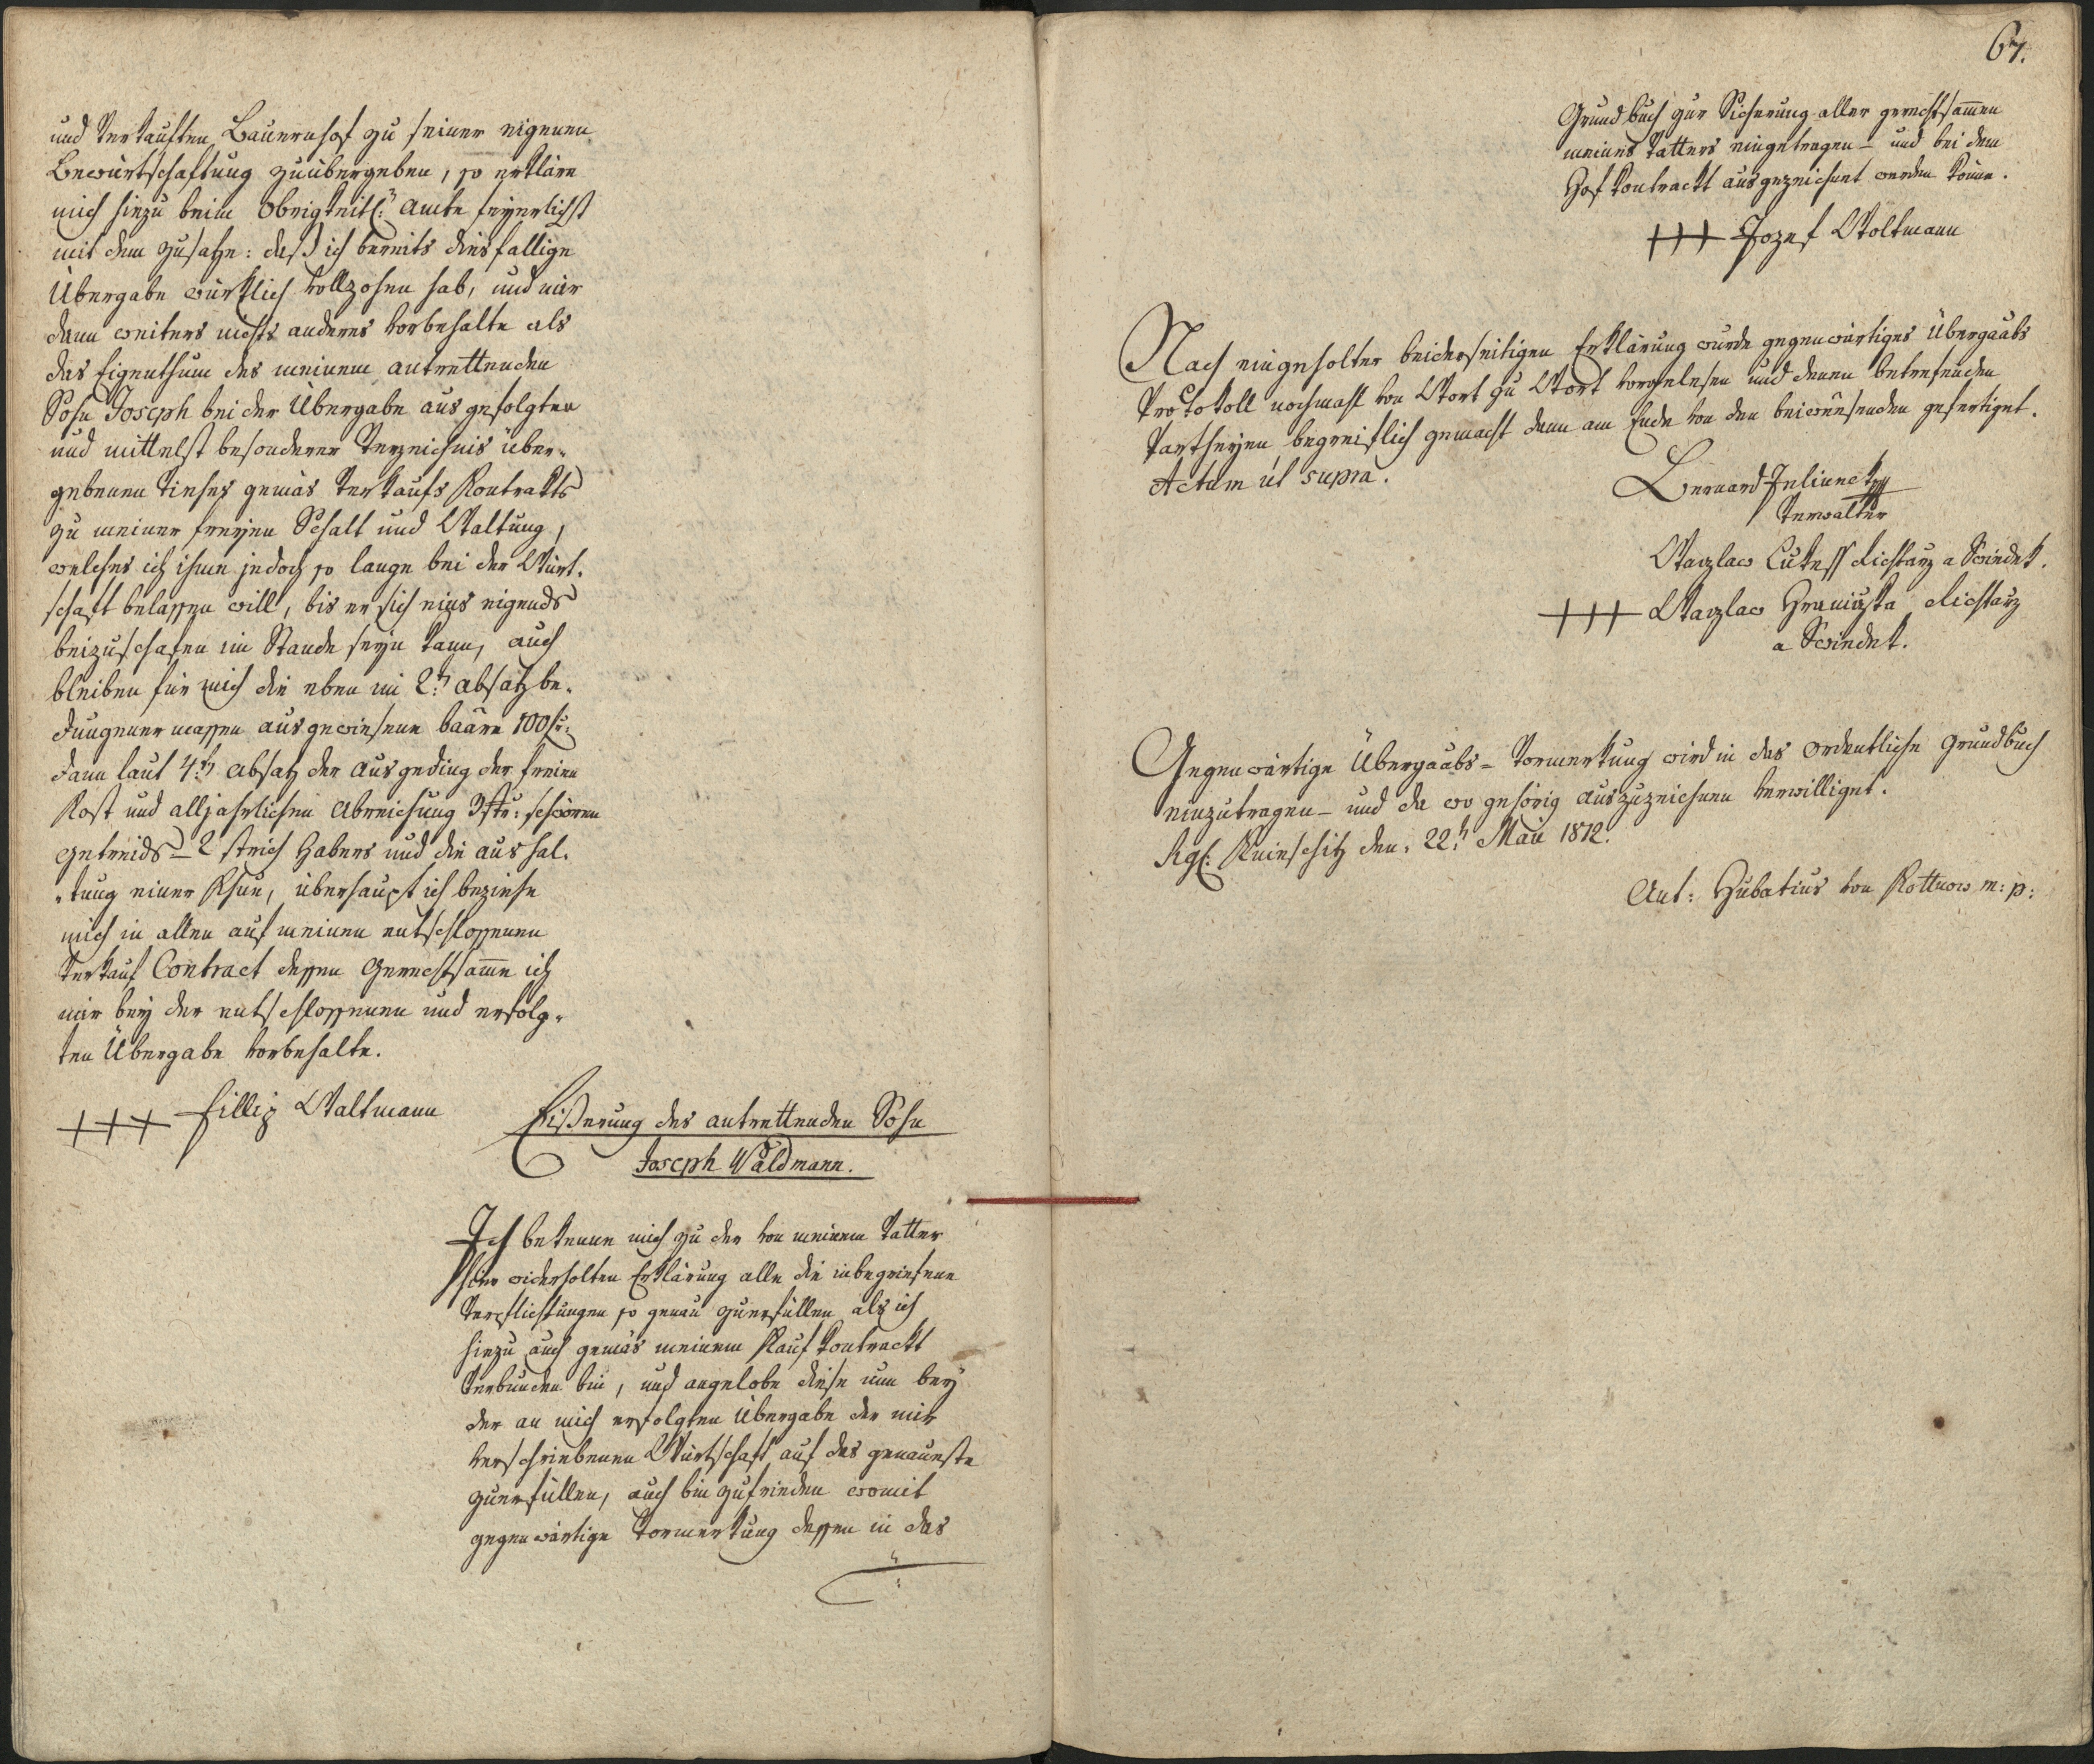 und verkauften Bauernhof zu seiner eigenen
Bewürtschaftung zuübergeben, so erkläre
mich hiezu beim Obrigkeitl: Amte feyerlichst
mit dem Zusatze: daß ich bereits diesfallige
Übergabe würklich vollzohen hab, und mir
dann weiters nichts anderes vorbehalte als
das Eigenthum des meinem antrettenden
Sohn Joseph bei der Übergabe ausgefolgten
und mittelst besonderer Verzeichnis über-
gebenen Viehes gemäs Verkaufs Kontrakts
zu meiner freyen Schalt und Waltung,
welches ich ihme jedoch so lange bei der Würt-
schaft belassen will, bis er sich eins eigends
beizuschafen im Stande seyn kann, auch
bleiben für mich die eben im 2t. Absatz be-
dungener massen ausgewiesene baare 100 fr:
dann laut 4t. Absatz der Ausgeding der freien
Kost und alljahrlichen Abreichung 3 str: schwören
Getreids – 2 strich Habers und die aushal-
-tung einer Khue, überhaupt ich beziehe
mich in allen auf meinen entschlossenen
Verkauf Contract dessen Gerechtsamme ich
mir bey der entschlossenen und erfolg-
ten Übergabe vorbehalte.
+++ Fillip Waltmann
des antrettenden Sohn
Joseph Waldmann.
Ich bekenne mich zu der von meinem Vatter
hier widerholten Erklärung alle die inbegriefene
Verpflichtungen so genau zuerfüllen als ich
hiezu auch gemäs meinem Kauf Kontrackt
verbunden bin, und angelobe diese nun bey
der an mich erfolgten Übergabe der mir
verschriebenen Würtschaft auf das genaueste
zuerfüllen, auch bin zufrieden womit
gegenwärtige Vormerkung dessen in das
67.
Grundbuch zur Sicherung aller gerechtsammen
meines Vatters eingetragen – und bei dem
Hof Kontrackt ausgezeichnet werden könne.
+++ Jozef Woltmann
Nach eingeholter beiderseitigen Erklärung wurde gegenwärtiges Übergaabs
Protokoll nochmahl von Wort zu Wort vorgelesen und denen betrefenden
Partheyen begreiflich gemacht dann am Ende von den beiwesenden gefertiget.
Actum ut supra.
Bernard Jelinek
Verwalter
Waczlaw Lukess Richtarz a Swindek.
+++ Waczlaw Hraniczka Richtarz
a Swindek.
Gegenwärtige Übergaabs – Vormerkung wird in das ordentliche Grundbuch
einzutragen – und da wo gehörig auszuzeichnen verwilliget.
Sigl: Knieschitz den 22t. Maii 1812.
Ant: Hubatius von Kottnow m: p: